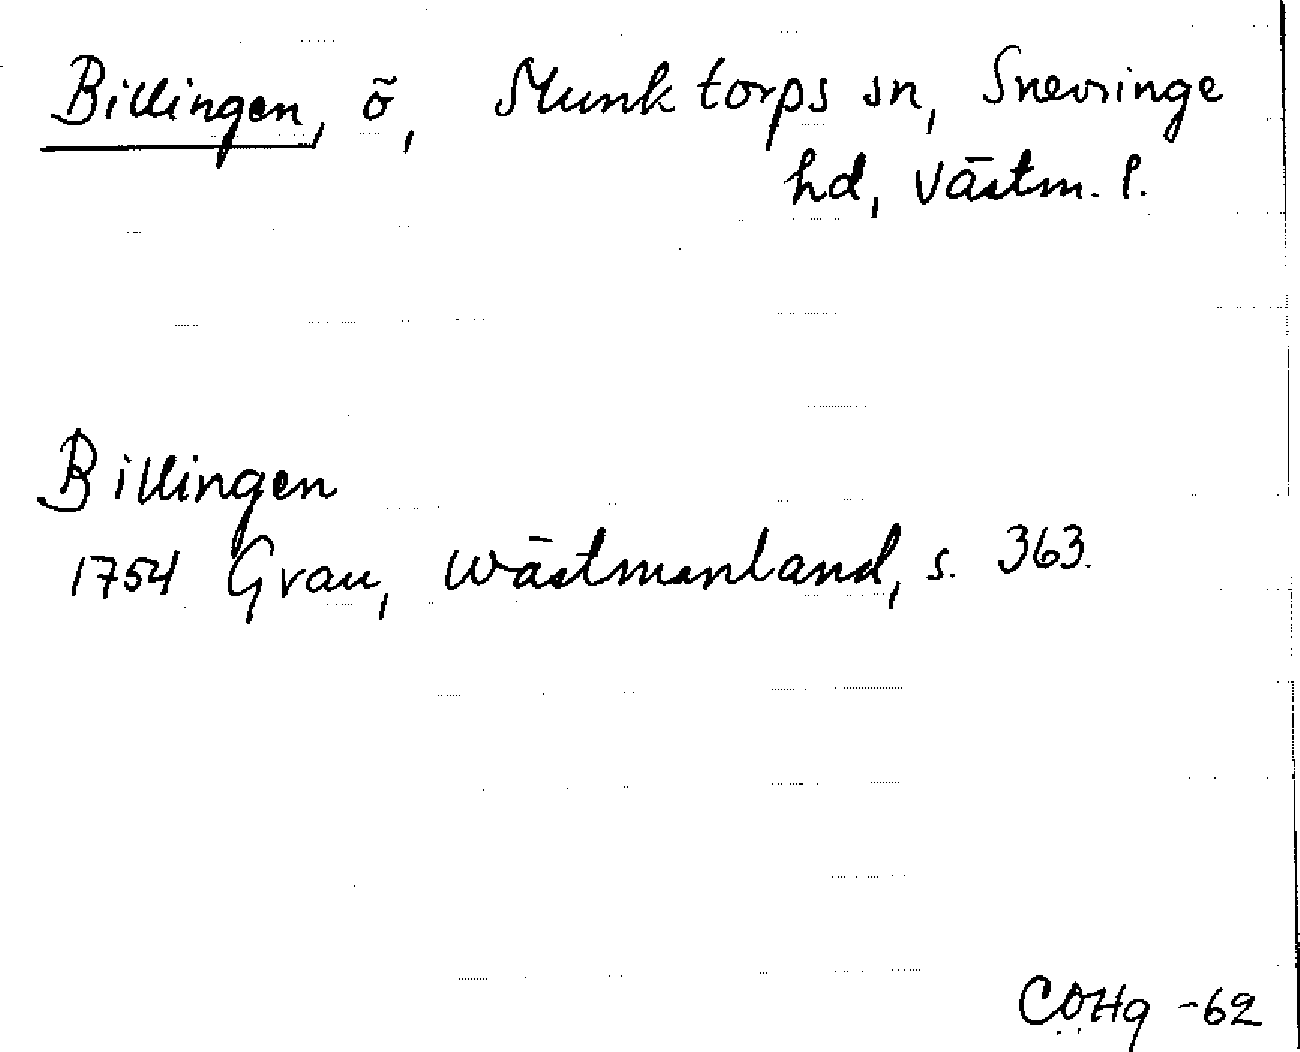 Billingen, ö, Munktorps sn, Snevringe
hd, Västm. l.
Billingen
1754 Grau, Wästmanland, s. 363.
COHg -62